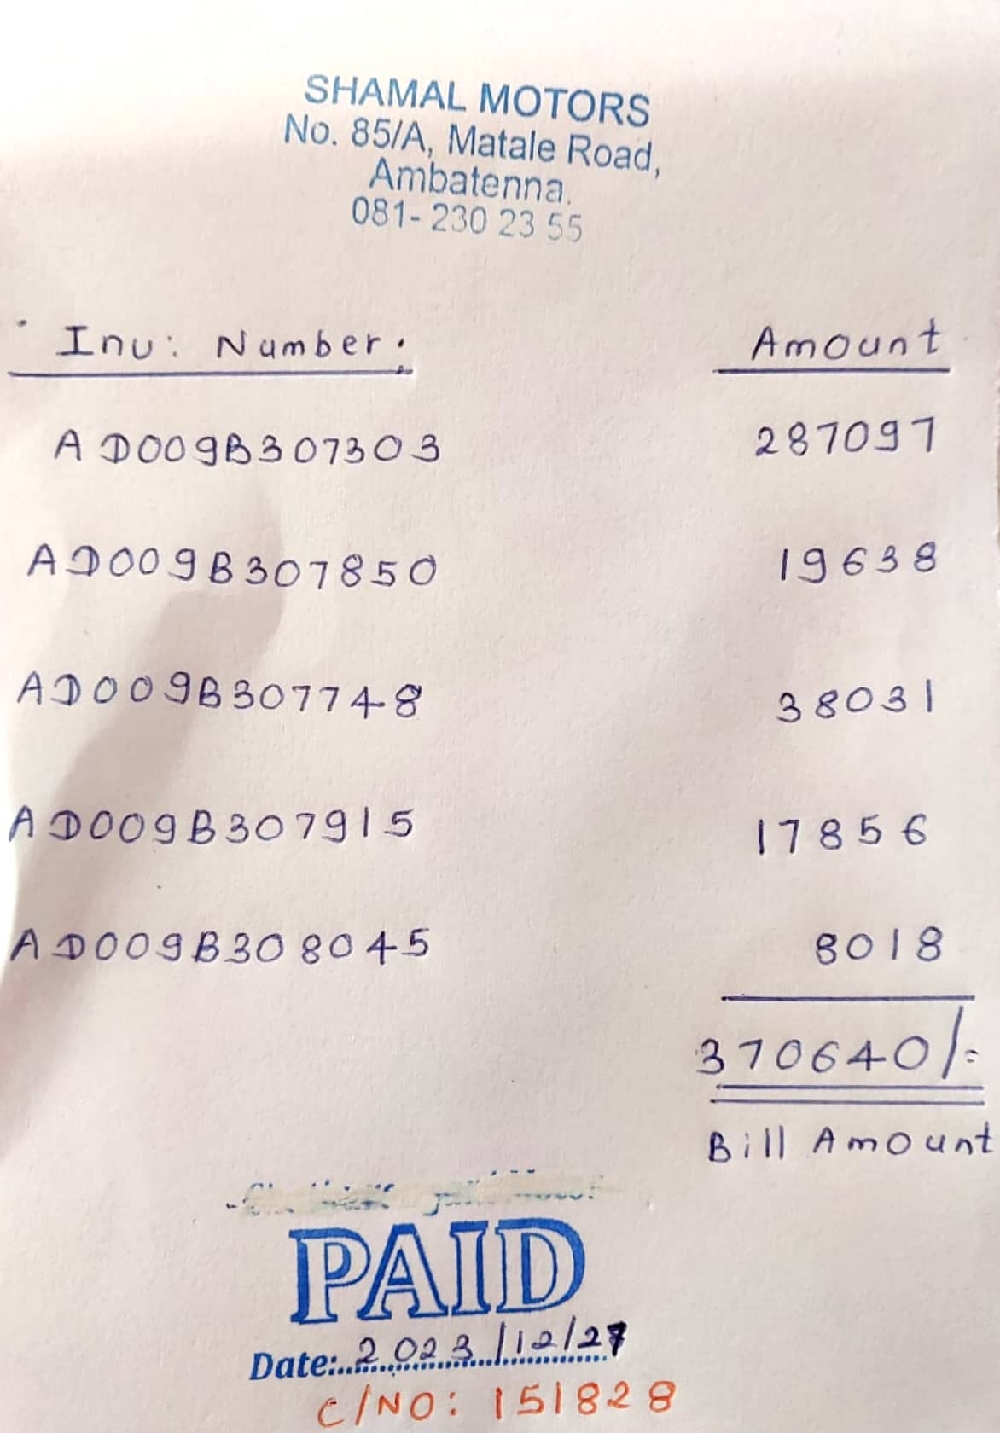 SHAMAL MOTORS
No. 85/A, Matale Road,
Ambatenna.
081- 230 23 55
Inv: Number. Amount
AD009B307303 287097
AD009B307850 19638
AD009B307748 38031
AD009B307915 17856
AD009B308045 8018
370640/=
Bill Amount
PAID
Date:..2023/12/27
C/NO: 151828